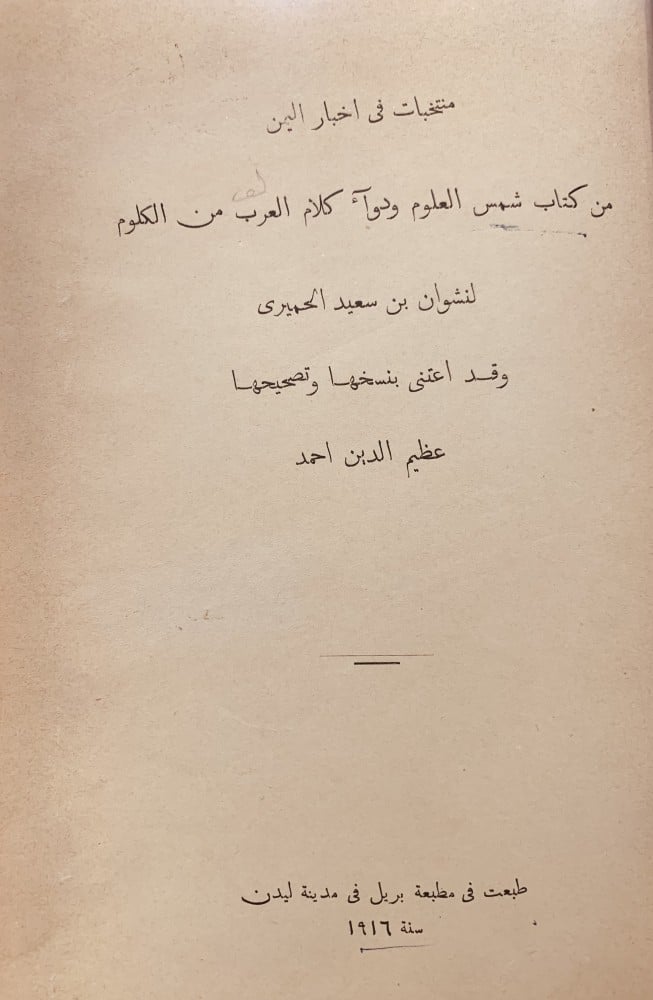 منتخبات فى اخبار اليمن
من كتاب شمس العلوم ودوآء كلام العرب من الكلوم
لنشوان بن سعيد الحميرى
وقد اعتنى بنسخها وتصحيحها
عظيم الدين احمد
طبعت فى مطبعة بريل فى مدينة ليدن
سنة ١٩١٦